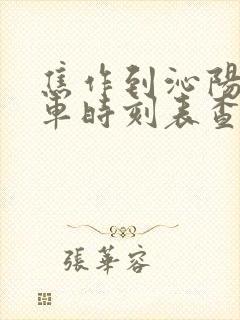 焦作到沁陽
車時刻表查
張華容